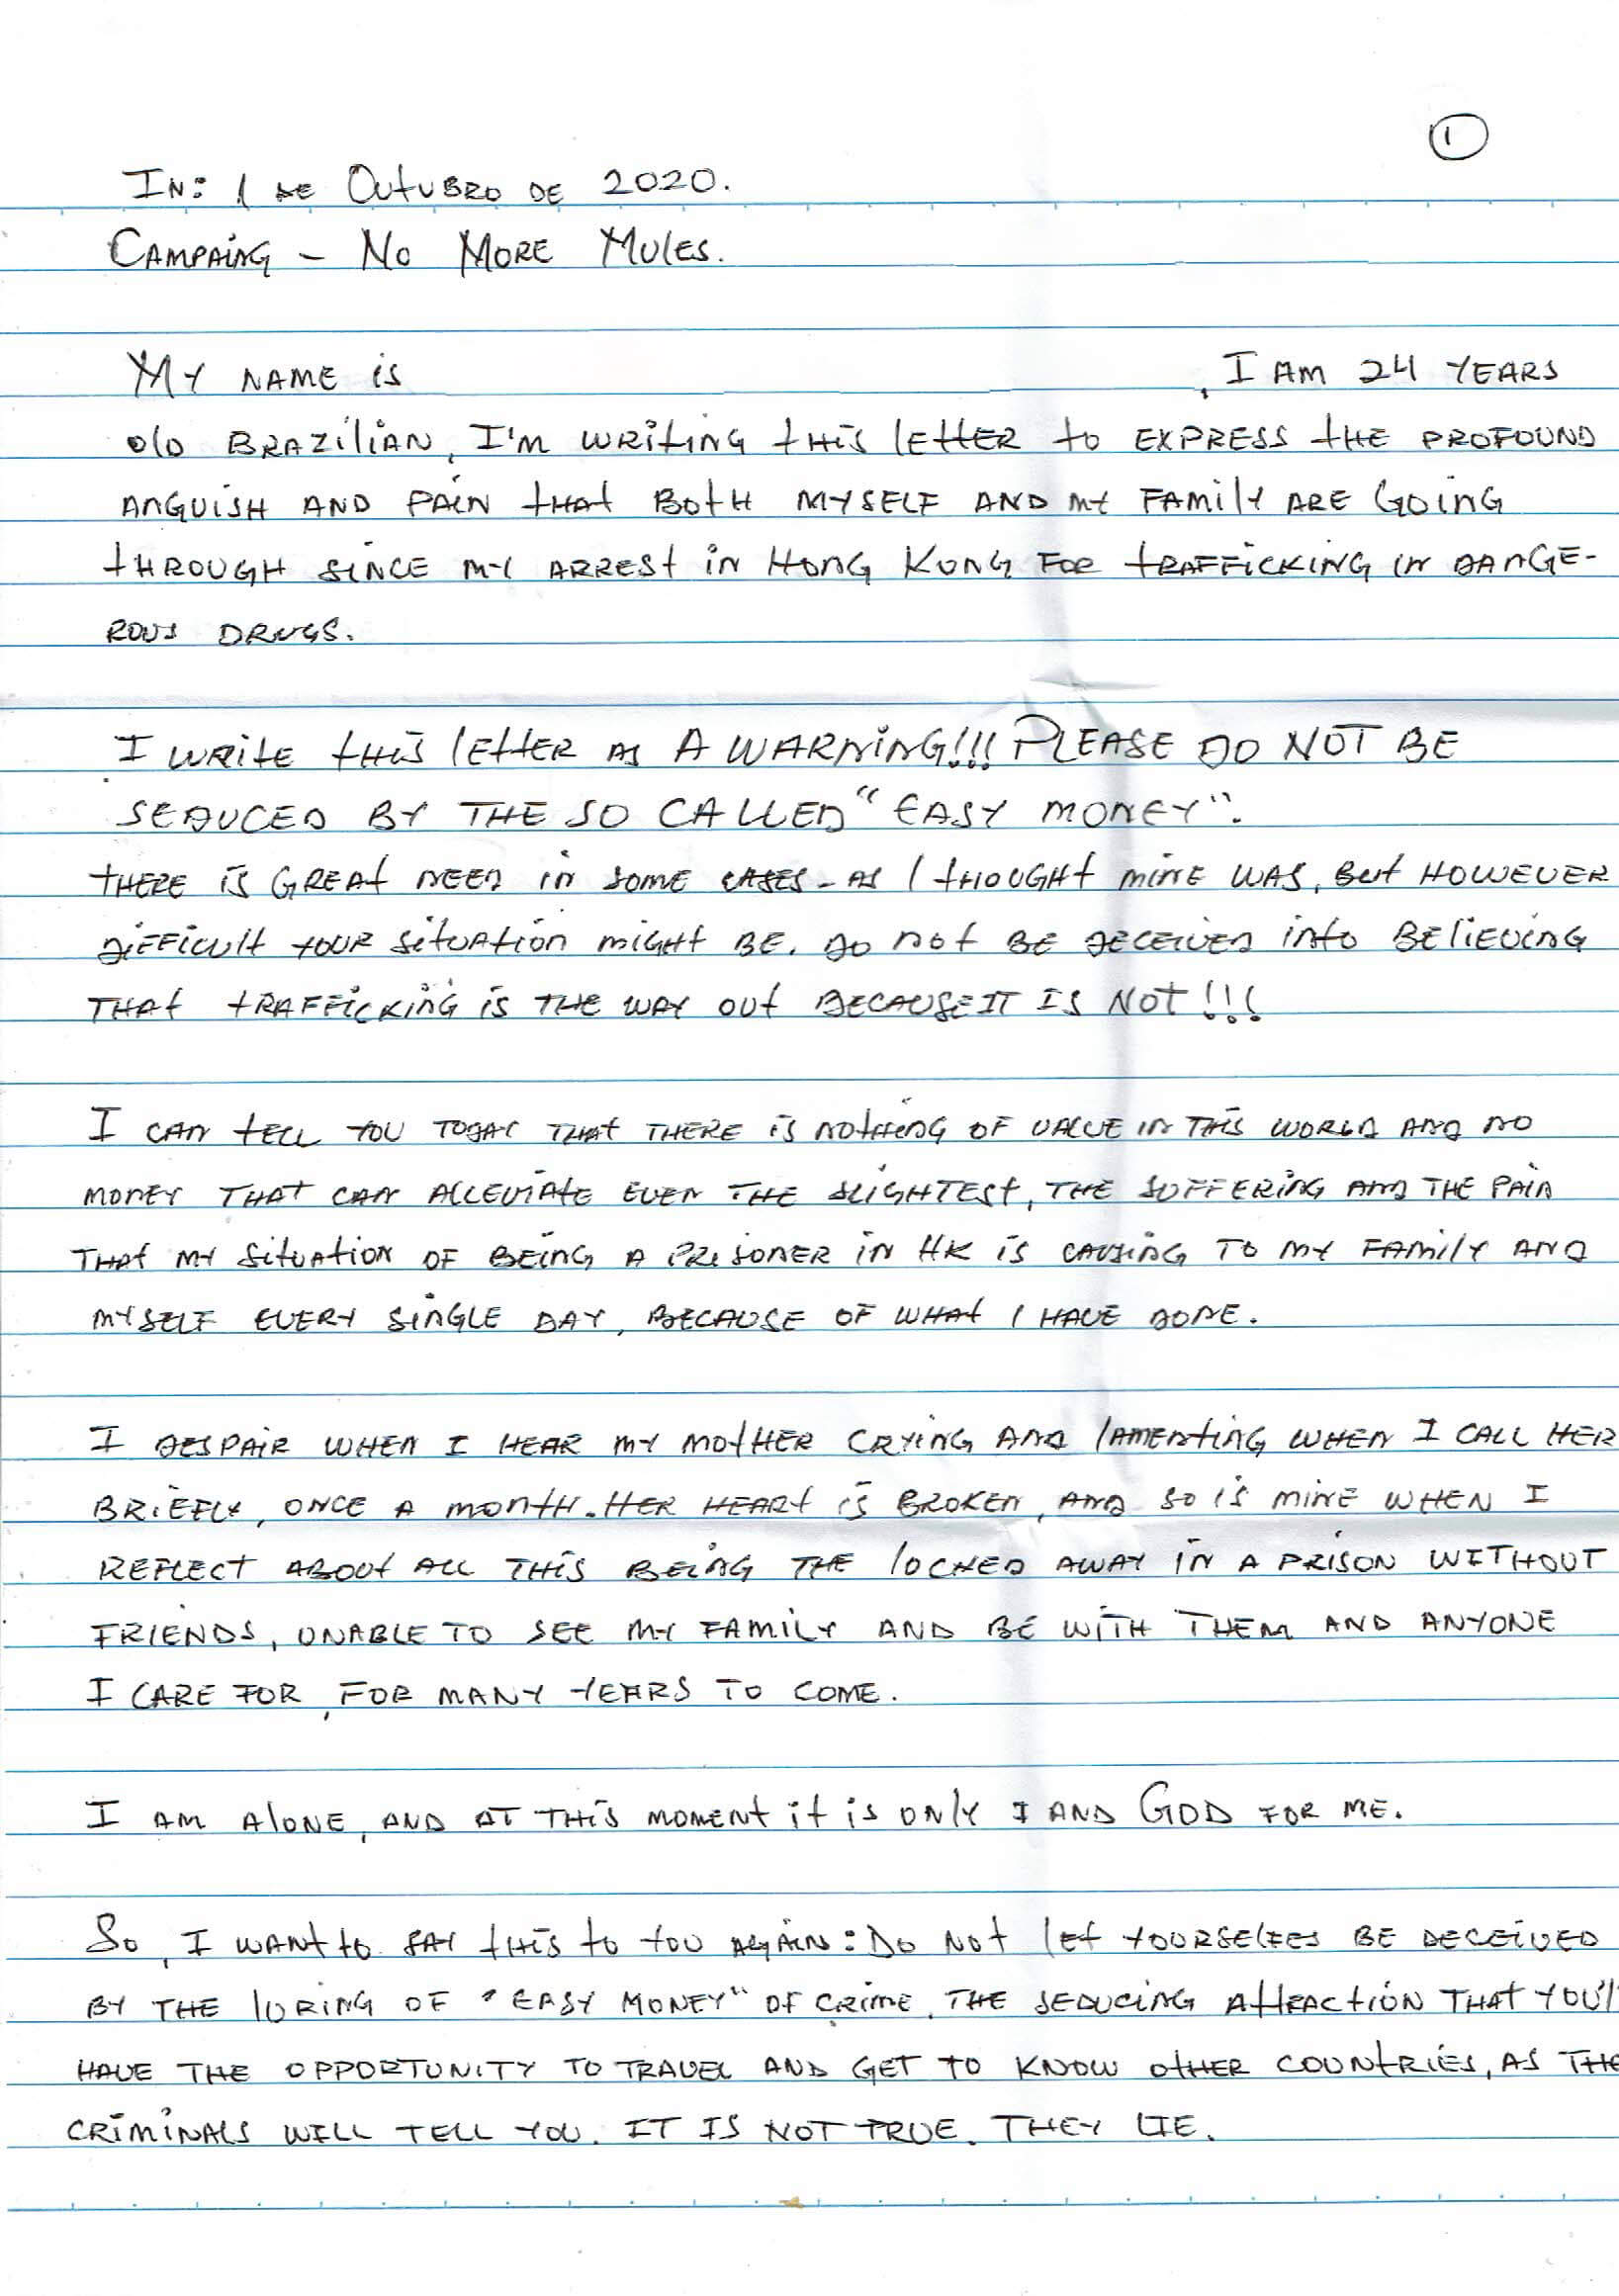 1
In: 1 de Outubro de 2020.
Campaing - No More Mules.
My name is , I am 24 years
old Brazilian, I'm writing this letter to express the profound
anguish and pain that both myself and my family are going
through since my arrest in Hong Kong for trafficking in dange-
rous drugs.
I write this letter as a WARNING!!! PLEASE DO NOT BE
SEDUCED BY THE SO CALLED "EASY MONEY".
There is great need in some cases - as I thought mine was, but however
difficult your situation might be. Do not be deceived into believing
that trafficking is the way out because it is NOT!!!
I can tell you today that there is nothing of value in this world and no
money that can alleviate even the slightest, the suffering and the pain
that my situation of being a prisoner in HK is causing to my family and
myself every single day, because of what I have done.
I despair when I hear my mother crying and lamenting when I call her
briefly, once a month. Her heart is broken, and so is mine when I
reflect about all this being the locked away in a prison without
friends, unable to see my family and be with them and anyone
I care for, for many years to come.
I am alone, and at this moment it is only I and God for me.
So, I want to say this to you again: Do not let yourselfes be deceived
by the luring of "easy money" of crime. The seducing attraction that you'll
have the opportunity to travel and get to know other countries, as the
criminals will tell you. It is not true. They lie.